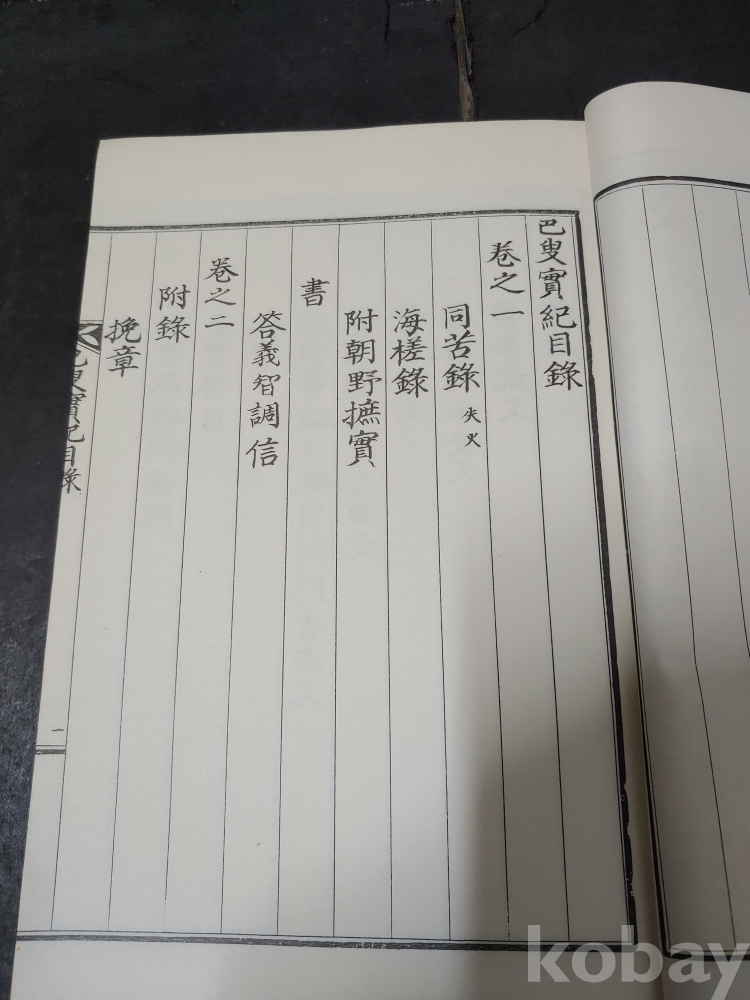 巴叟實紀目錄
卷之一
同苦錄 失火
海槎錄
附朝野摭實
書
答義智調信
卷之二
附錄
挽章
巴叟實紀目錄
一
kobay